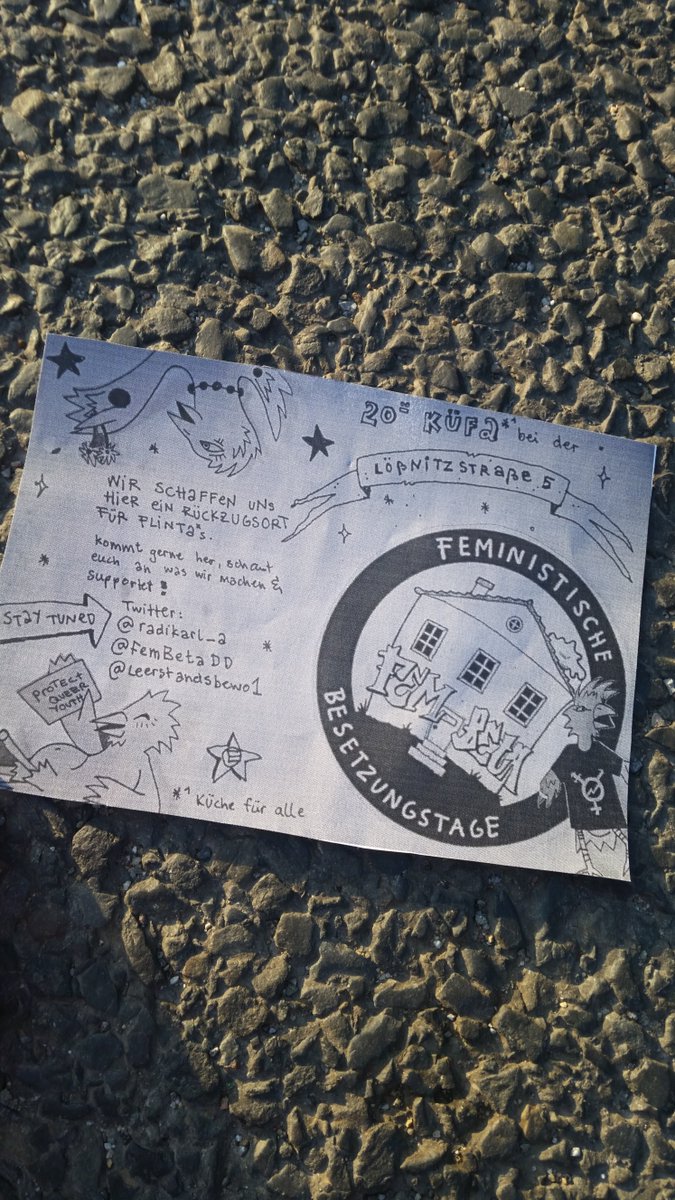 WIR SCHAFFEN UNS
HIER EIN RÜCKZUGSORT
FÜR FLINTA*s.
kommt gerne her, schaut
euch an was wir machen &
supportet!
STAY TUNED
Twitter:
@radikarl_a
@femBetaDD
@Leerstandsbewo1
PROTECT
QUEER
YOUTH
*¹ Küche für alle
20⁰⁰ KÜFA*¹ bei der
LÖßNITZSTRAßE 5
FEMINISTISCHE
BESETZUNGSTAGE